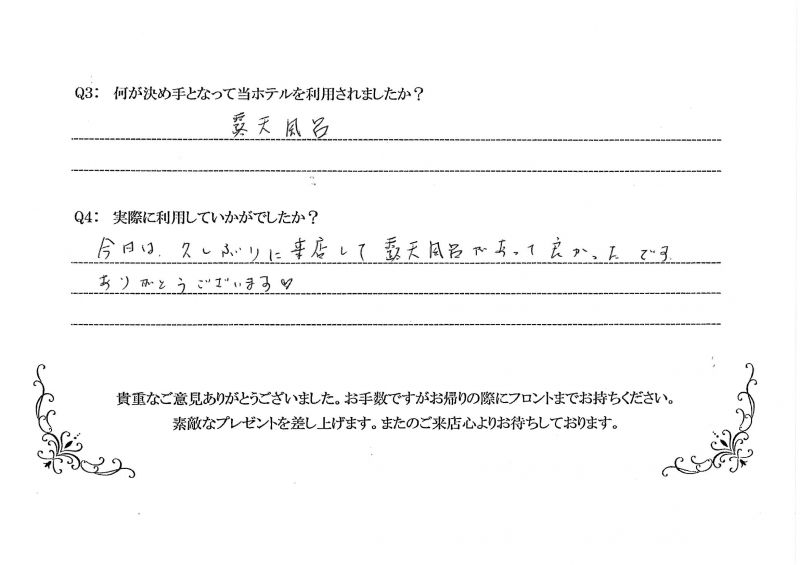 Q3: 何が決め手となって当ホテルを利用されましたか?
露天風呂
Q4: 実際に利用していかがでしたか?
今日は、久しぶりに来店して露天風呂があって良かったです
ありがとうございます♡
貴重なご意見ありがとうございました。お手数ですがお帰りの際にフロントまでお持ちください。
素敵なプレゼントを差し上げます。またのご来店心よりお待ちしております。